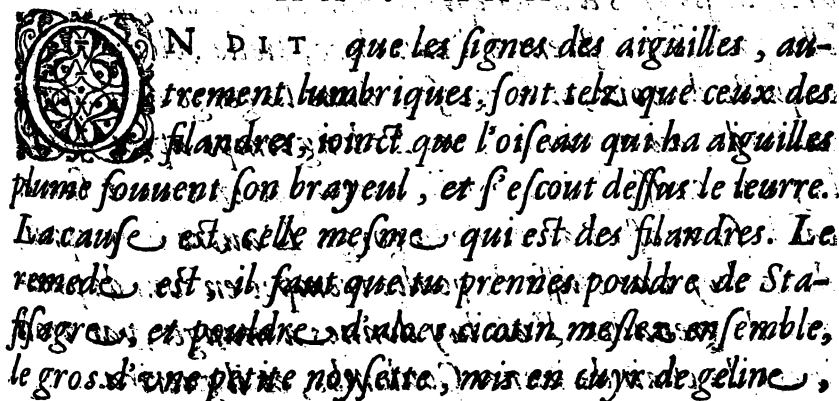 ON DIT que les ſignes des aiguilles, au-
trement lumbriques, ſont telz que ceux des
filandres, ioinct que l'oiſeau qui ha aiguilles
plume ſouuent ſon brayeul, et ſ'eſcout deſſus le leurre.
La cauſe eſt celle meſme qui eſt des filandres. Le
remede eſt, il faut que tu prennes pouldre de Sta-
fiſagre, et pouldre d'aloes cicotin meſlez enſemble,
le gros d'vne petite noyſette, mis en cuyr de geline,